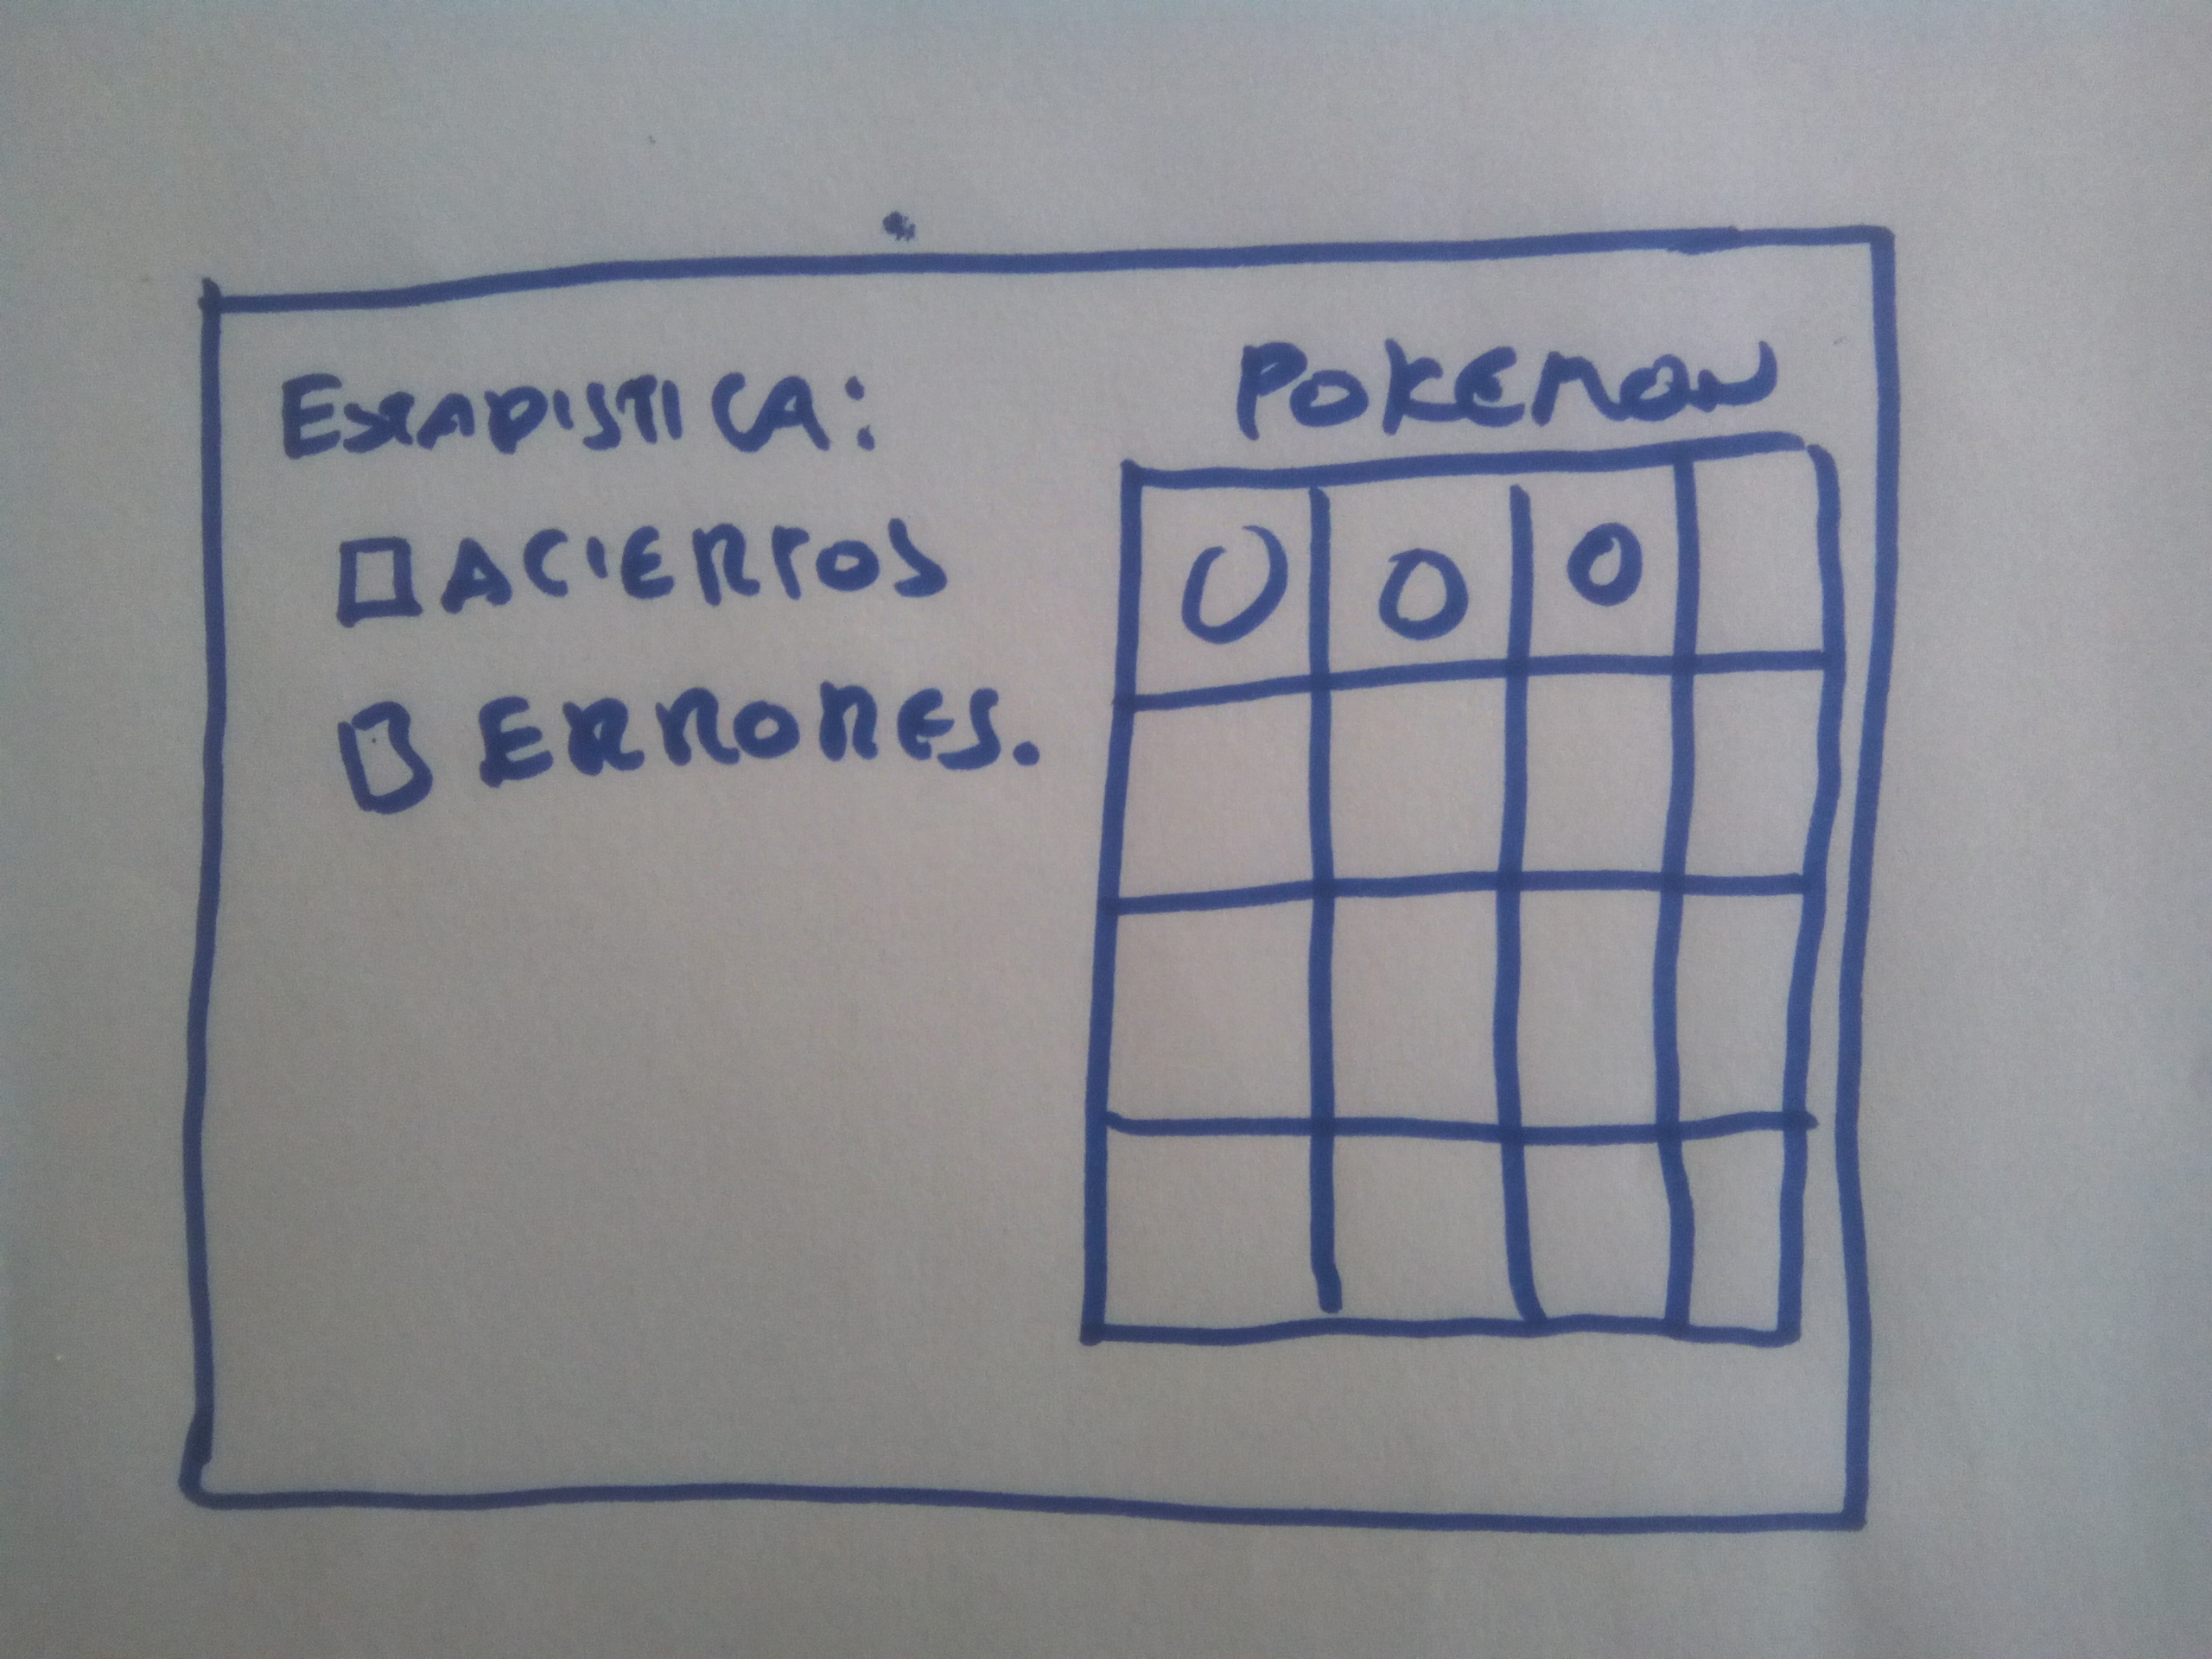 ESTADISTICA:
ACIERTOS
ERRORES.
POKEMON
O O O